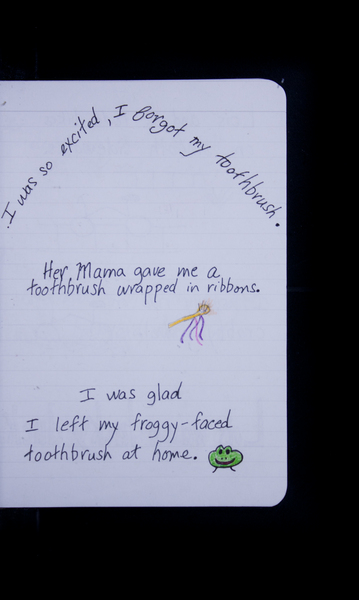 I was so excited, I forgot my toothbrush.
Her Mama gave me a
toothbrush wrapped in ribbons.
I was glad
I left my froggy-faced
toothbrush at home.